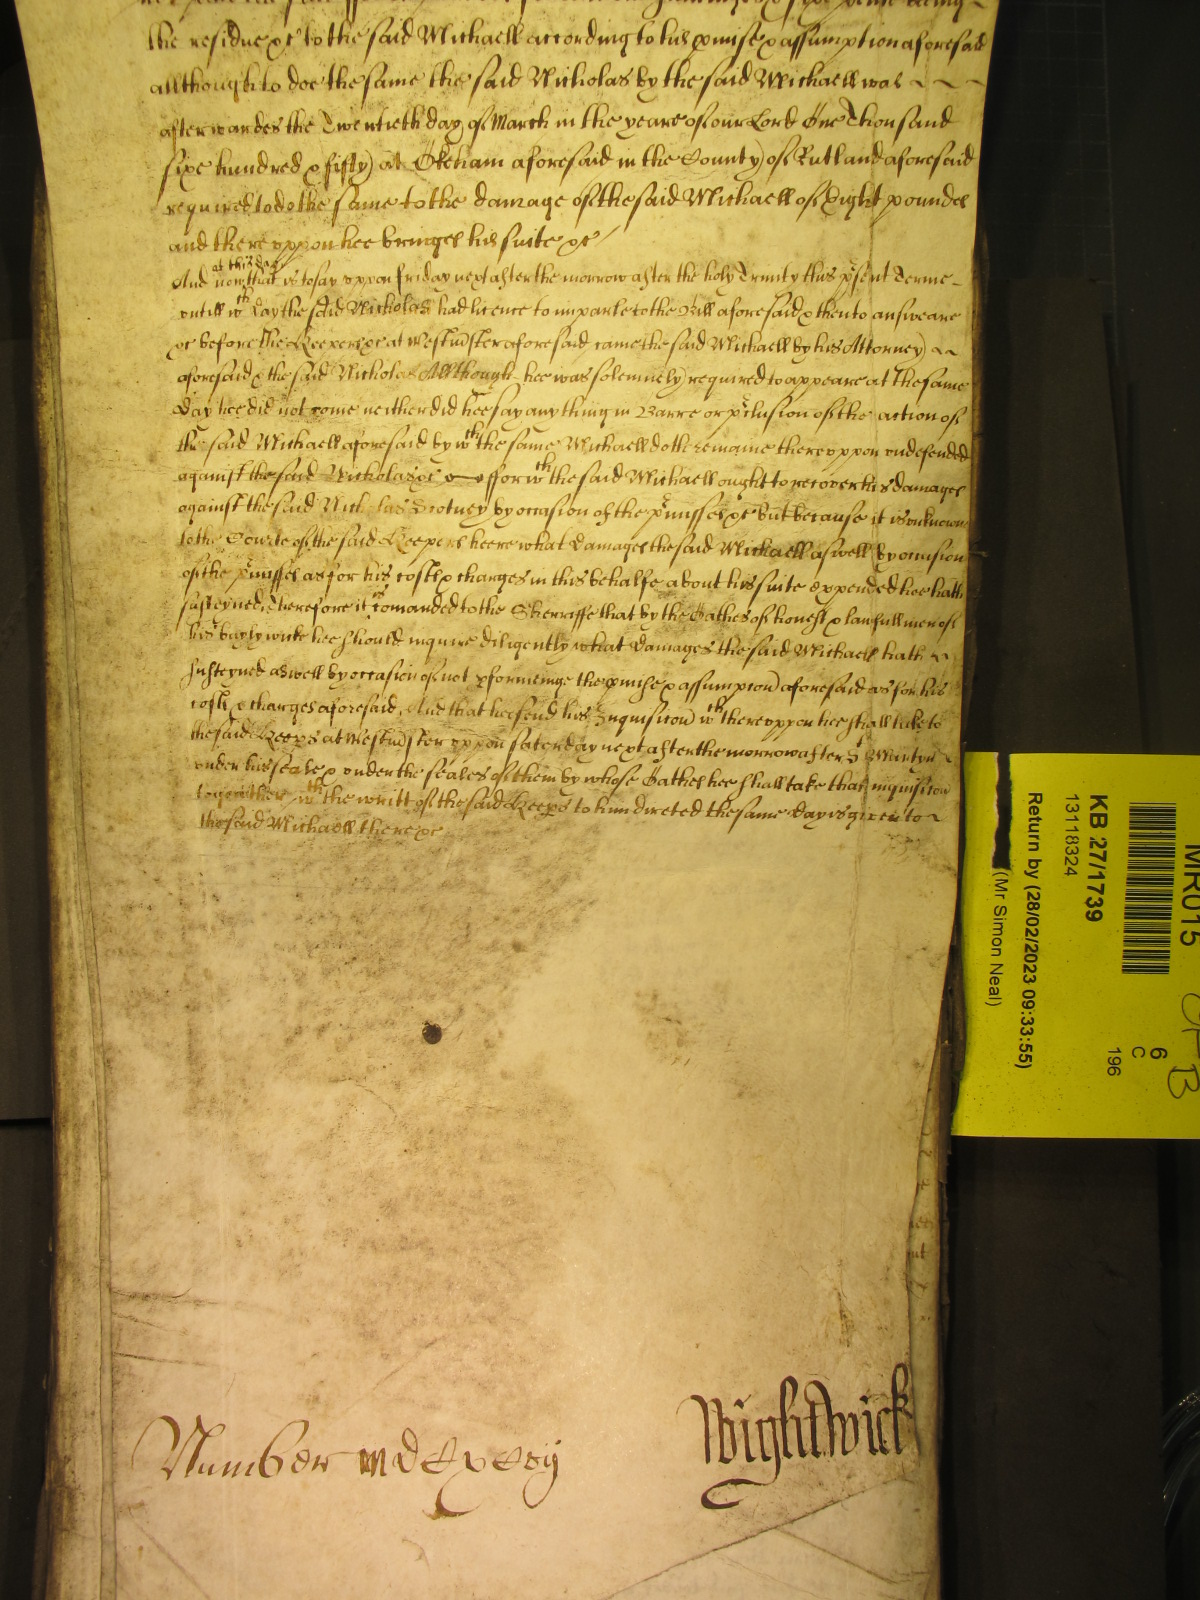 the residue &c to the said Michaell according to his pmise & assumption aforesaid
allthough to doe the same the said Nicholas by the said Michaell was
afterwardes the Twentieth day of March in the yeare of our Lord One Thousand
sixe hundred & fifty at Okeham aforesaid in the County of Rutland aforesaid
required to do the same to the damage of the said Michaell of Eight poundes
and thereuppon hee bringes his suite &c
And now at this day that is to say uppon Friday next after the morrow after the holy Trinity this psent Terme
untill wch day the said Nicholas had licence to imparle to the Bill aforesaid & then to answeare
&c before the Keepers &c at Westmster aforesaid came the said Michaell by his Attorney
aforesaid & the said Nicholas Allthough hee was solemnely required to appeare at the same
Day hee did not come neither did hee say any thing in Barre or pclusion of the action of
the said Michaell aforesaid by wch the same Michaell doth remaine thereuppon undefended
against the said Nicholas &c ffor wch the said Michaell ought to recover his damages
against the said Nicholas by occasion of the pmisses &c but because it is unknown
to the Courte of the said Keepers heere what Damages the said Michaell aswell by occasion
of the pmisses as for his costs & charges in this behalfe about his suite expended hee hath
susteyned Therefore it is comanded to the Sherriffe that by the Oathes of honest & lawfull men of
his baylywicke hee should inquire diligently what Damages the said Michaell hath
susteyned aswell by occasion of not pformeinge the pmise & assumpcon aforesaid as for his
costs & charges aforesaid. And that hee send his Inquisicon wch thereuppon hee shall take to
the said Keeps at Westmster uppon Saterday next after the morrow after St Martyn
under his seale & under the seales of them by whose Oathes hee shall take that inquisicon
together wth the writt of the said Keeps to him directed the same day is given to
the said Michaell there &c
Number
Wightwick
MR015
KB 27/1739
13118324
Return by (28/02/2023 09:33:55)
(Mr Simon Neal)
6
C
196